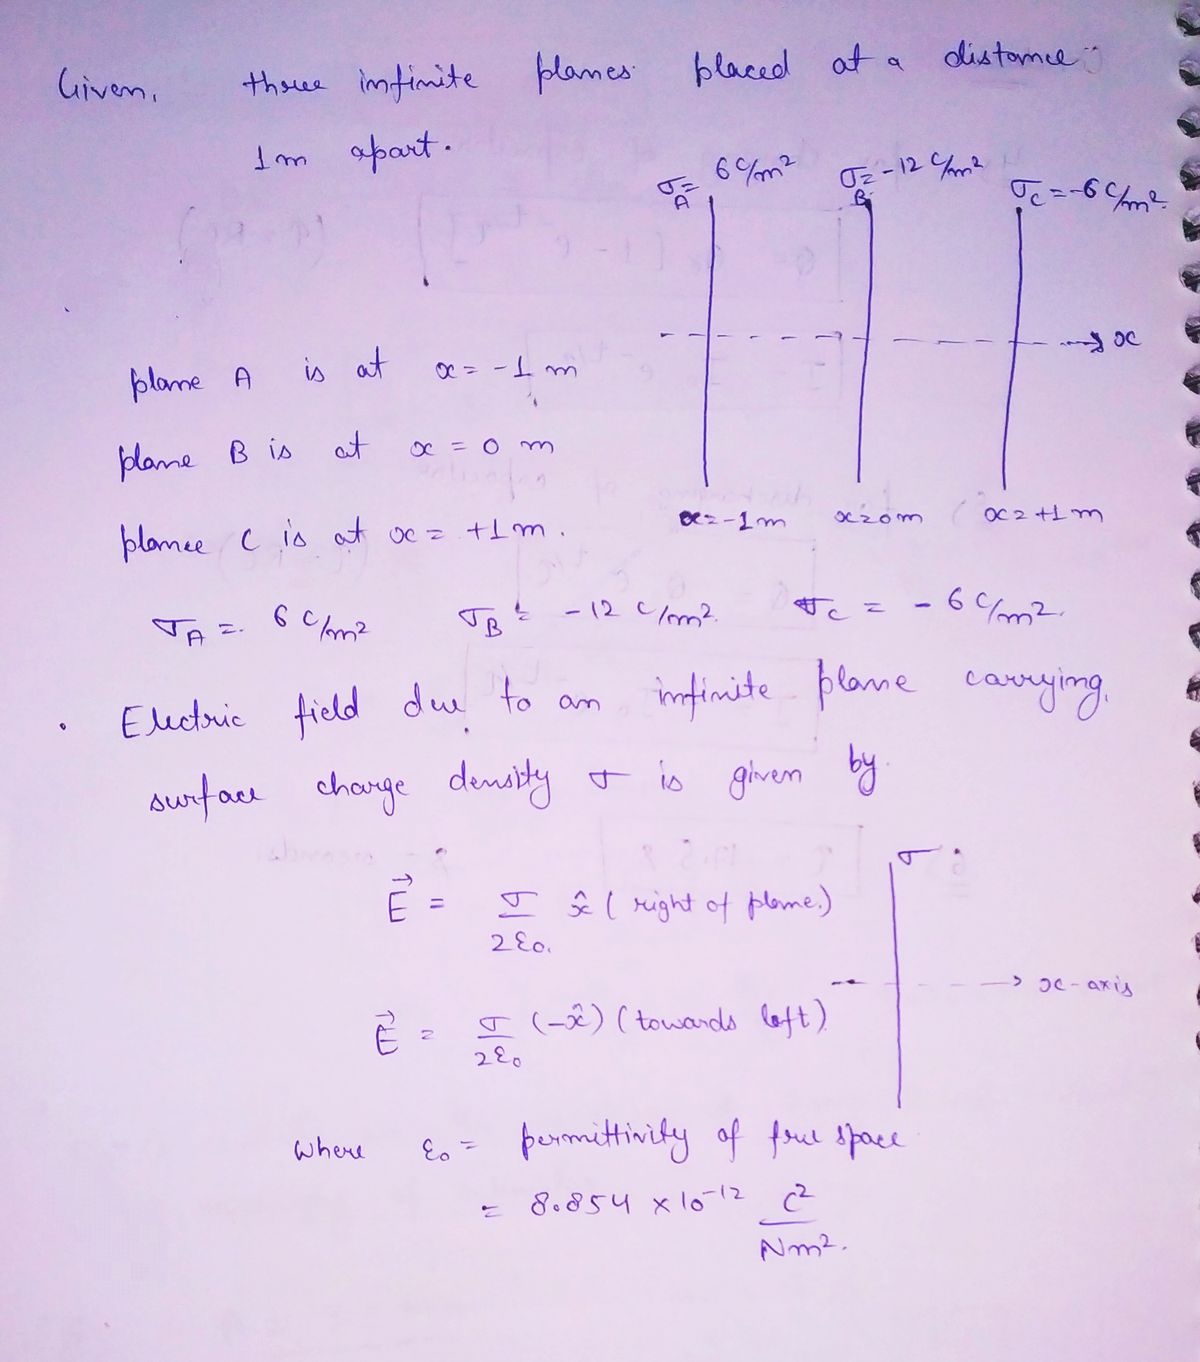 Given, three infinite planes placed at a distance
1m apart.
σA = 6 C/m² σB = -12 C/m² σC = -6 C/m².
x
plane A is at x = -1 m
plane B is at x = 0 m
x=-1m x=0m x=+1m
planee C is at x = +1m.
σA = 6 C/m² σB = -12 C/m². σC = -6 C/m².
. Electric field due to an infinite plane carrying,
surface charge density σ is given by
σ
E⃗ = σ/2ε0. x̂ ( right of plane.)
x-axis
E⃗ = σ/2ε0 (-x̂) (towards left)
where ε0 = permittivity of free space
= 8.854 × 10⁻¹² C²/Nm².